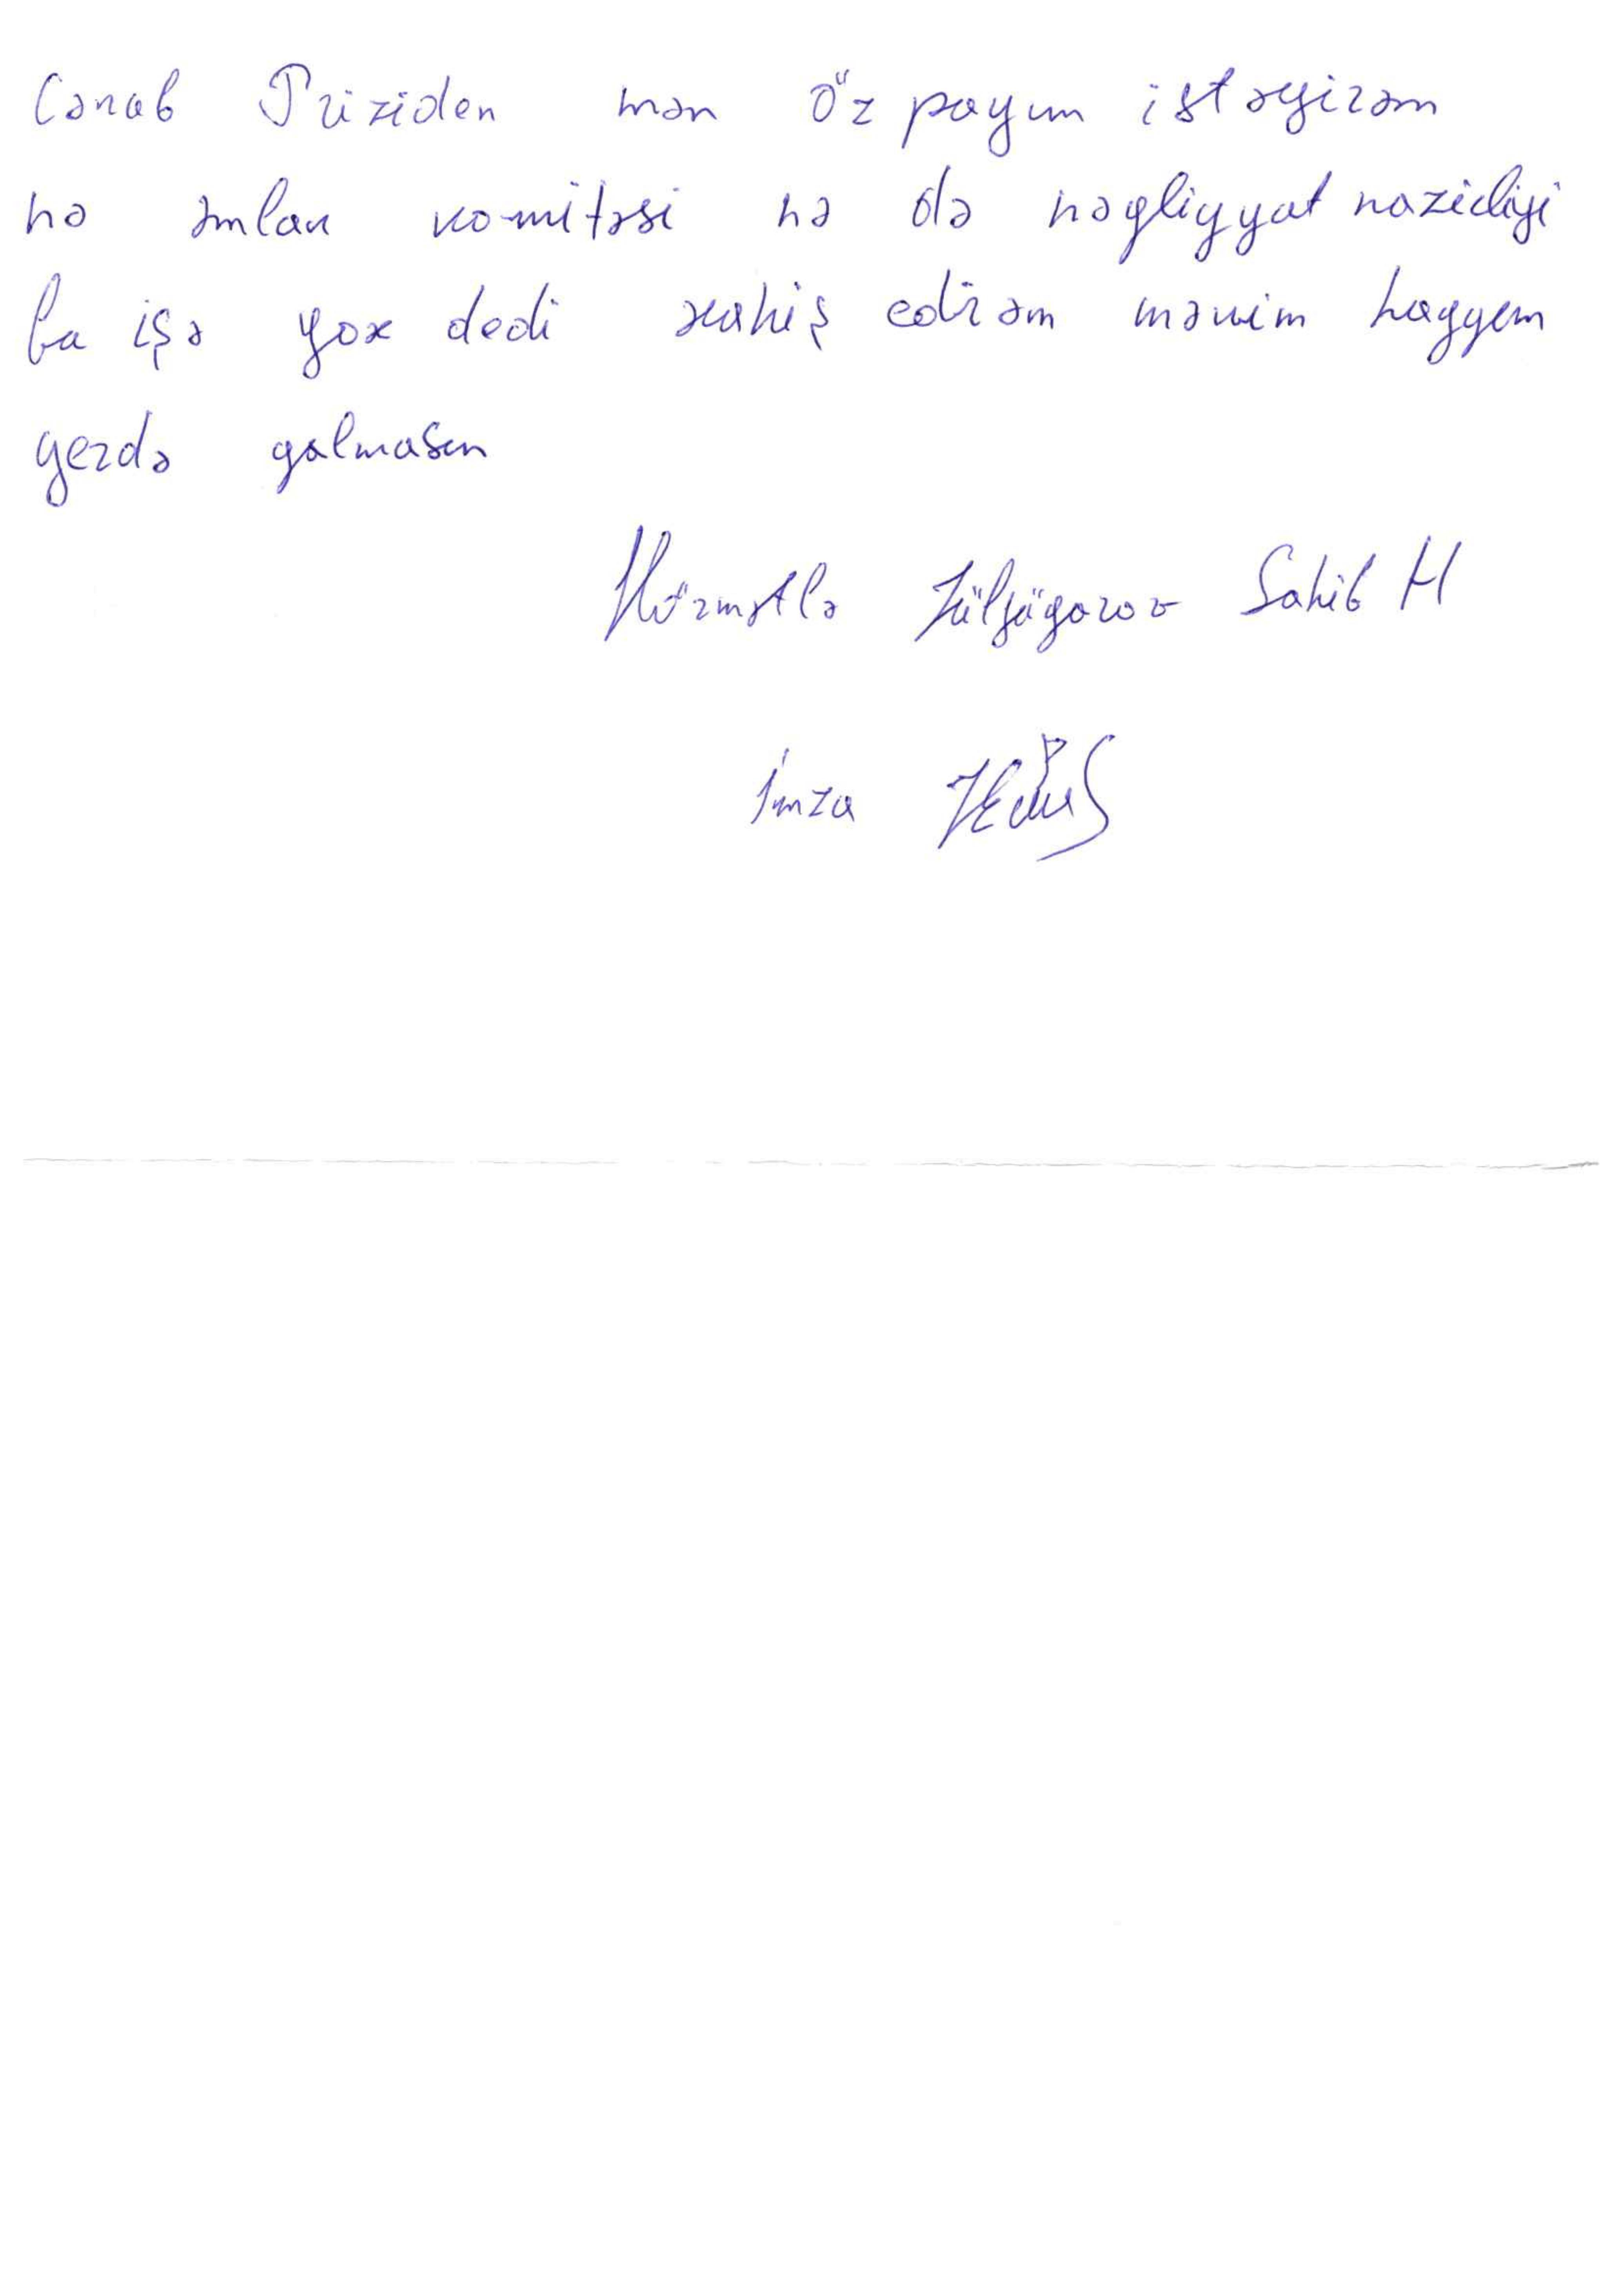 Cənab Priziden mən öz payım istəyirəm
nə əmlak komitəsi nə də nəgliyyat nazirliyi
bu işə yox dedi xahiş edirəm mənim haggım
yerdə galmasın
Hörmətlə Zülfügarov Sahib H
İmza